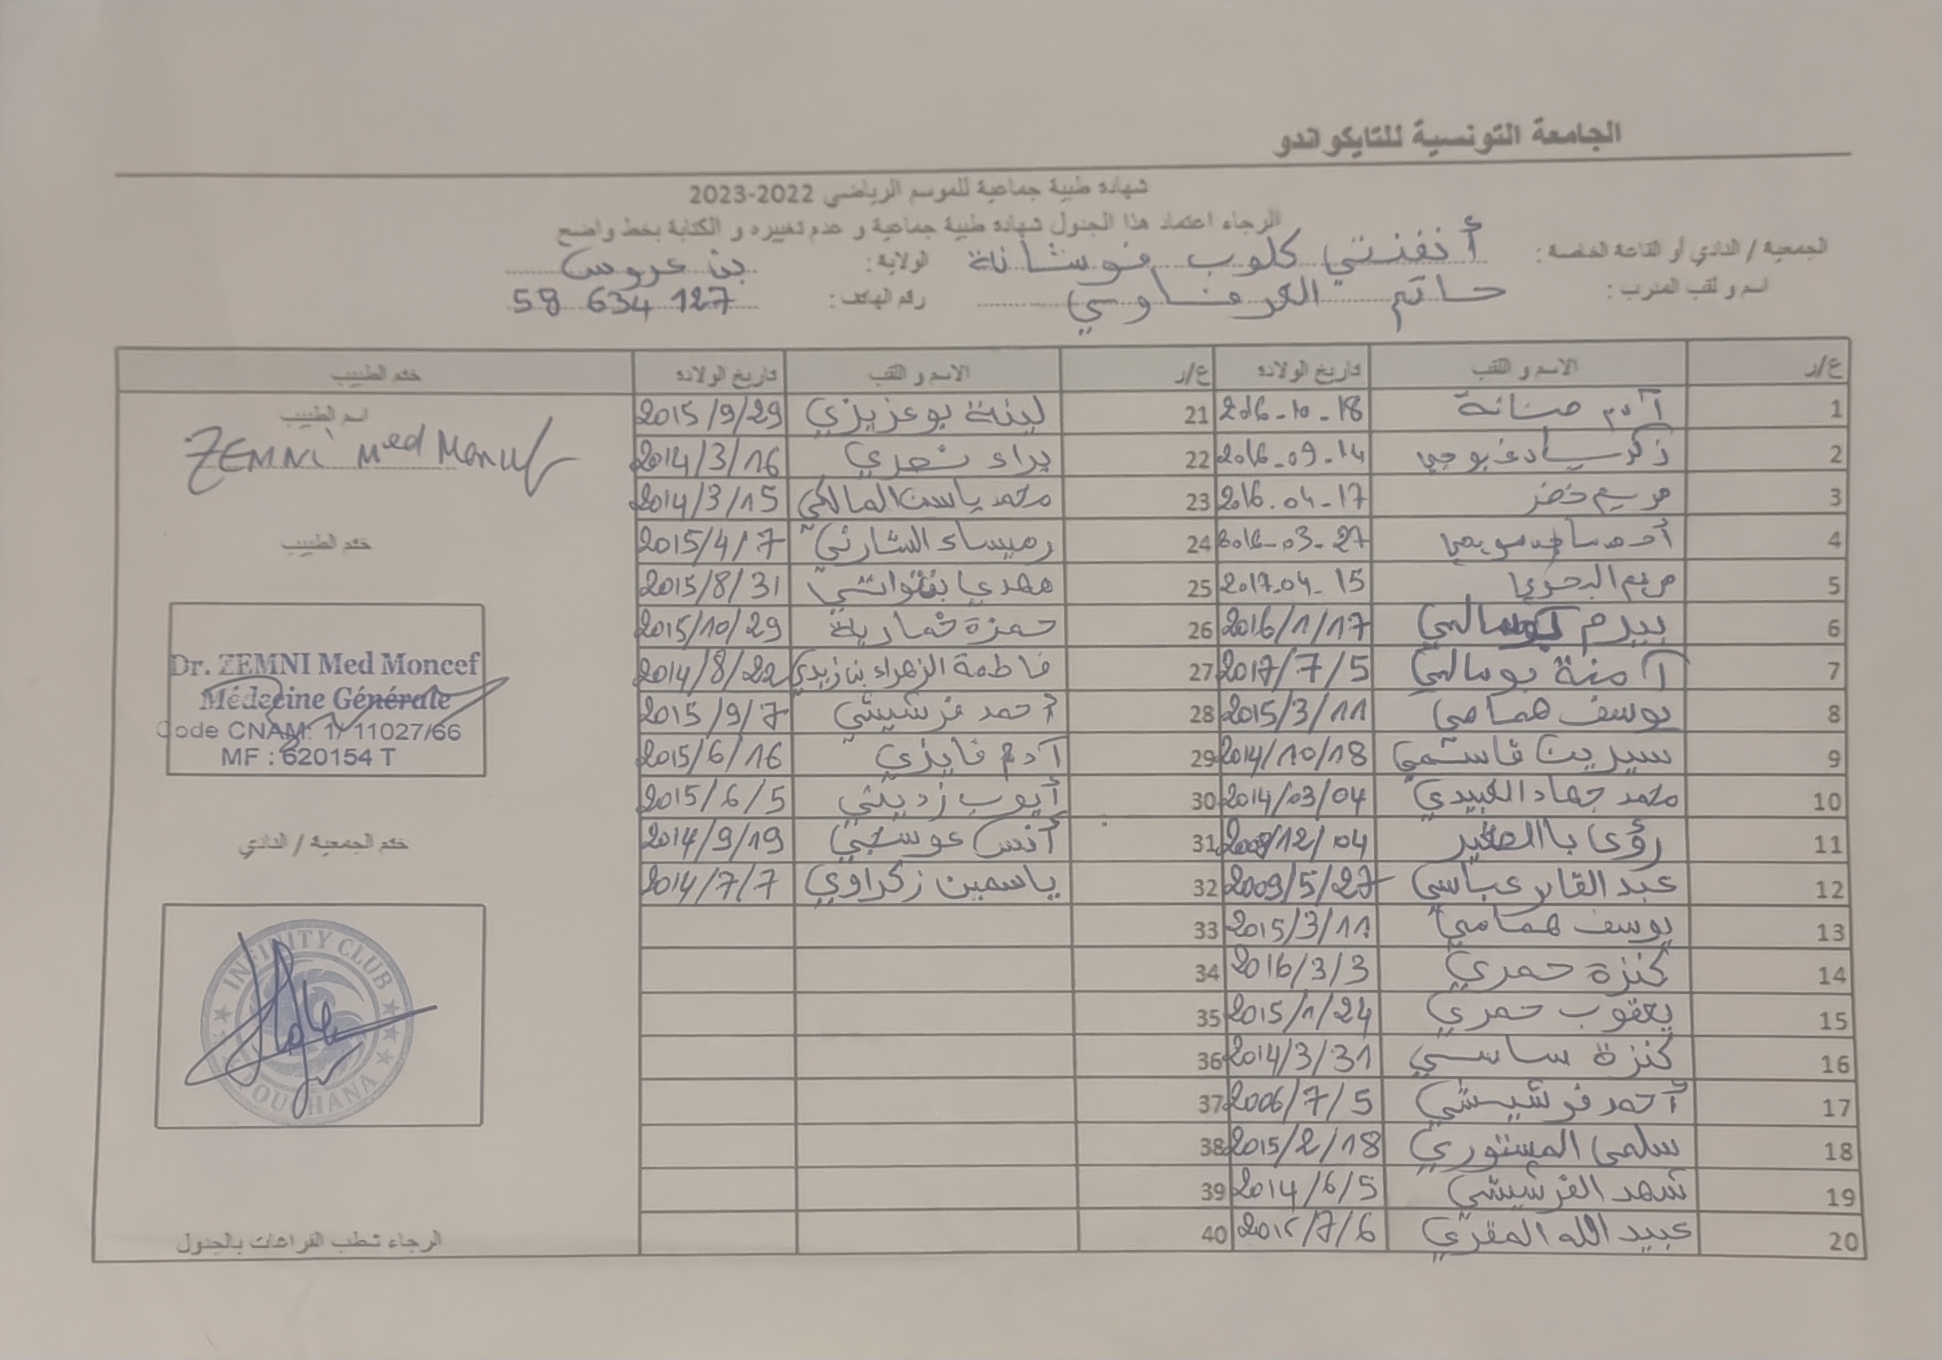 الجامعة التونسية للتايكواندو
شهادة طبية جماعية للموسم الرياضي 2022-2023
الرجاء اعتماد هذا الجدول شهادة طبية جماعية و عدم تغييره و الكتابة بخط واضح
الجمعية / النادي أو القاعة الخاصة : أنفنتي كلوب فوشانة الولاية : بن عروس
اسم و لقب المدرب : حاتم العرفاوي رقم الهاتف : 58 634 127
ع/ر الاسم و اللقب تاريخ الولادة ع/ر الاسم و اللقب تاريخ الولادة ختم الطبيب
1 آدم 2016-10-18 21 لينة بوعزيزي 2015/9/29
2 زكرياء 2016-09-14 22 براء 2014/3/16
3 مريم خضر 2016-04-17 23 محمد ياسين المالكي 2014/3/15
4 2016-03-27 24 رميساء الشارني 2015/4/7
5 مريم البحري 2017-04-15 25 مهدي 2015/8/31
6 بيرم بوسالمي 2016/1/17 26 حمزة خمارية 2015/10/29
7 آمنة بوسالمي 2017/7/5 27 فاطمة الزهراء بن زيدي 2014/8/22
8 يوسف همامي 2015/3/11 28 أحمد فرشيشي 2015/9/7
9 سيرين قاسمي 2014/10/18 29 آدم فايزي 2015/6/16
10 محمد جهاد العبيدي 2014/03/04 30 أيوب زديني 2015/6/5
11 رؤى باالصغير 12/04 31 أنس عوسجي 2014/9/19
12 عبد القادر عباسي 2009/5/27 32 ياسمين زكراوي 2014/7/7
13 يوسف همامي 2015/3/11 33
14 كنزة حمري 2016/3/3 34
15 يعقوب حمري 2015/1/24 35
16 كنزة ساسي 2014/3/31 36
17 أحمد فرشيشي 2006/7/5 37
18 سلمى المستوري 2015/2/18 38
19 شهد الفرشيشي 2014/6/5 39
20 عبيد الله المقري 2015/7/6 40
اسم الطبيب
ZEMNI Med Moncef
ختم الطبيب
Dr. ZEMNI Med Moncef
Médecine Générale
Code CNAM: 1/11027/66
MF : 620154 T
ختم الجمعية / النادي
INFINITY CLUB
FOUCHANA
الرجاء شطب الفراغات بالجدول